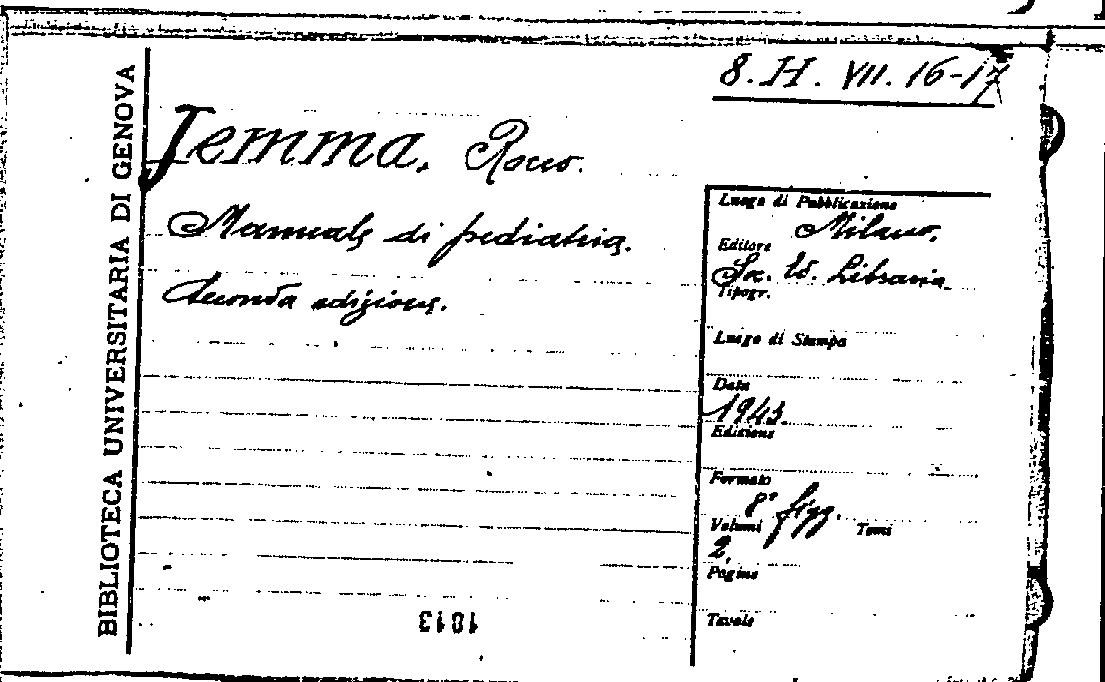 8. H. VII. 16-17
BIBLIOTECA UNIVERSITARIA DI GENOVA
Jemma, Rocco.
Manuale di pediatria.
Seconda edizione.
Luogo di Pubblicazione
Milano,
Editore
Soc. Ed. Libraria
Tipogr.
Luogo di Stampa
Data
1943.
Edizione
Formato
8° figg.
Volumi Tomi
2,
Pagine
Tavole
1813